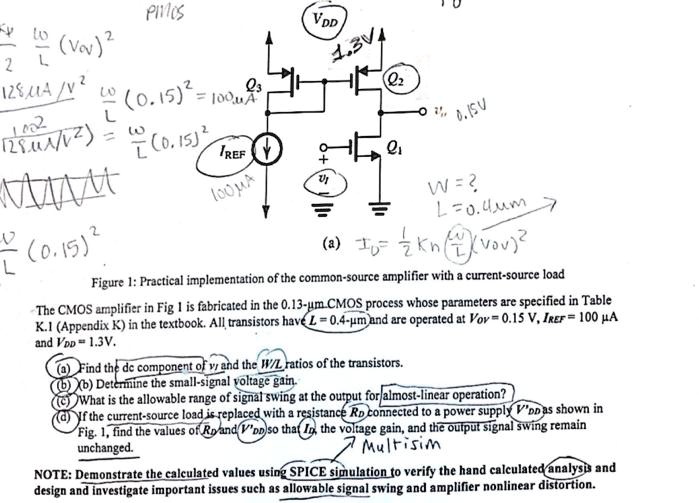 PMOS
VDD
1.3V
Kp/2 W/L (Vov)²
128 µA/V² W/L (0.15)² = 100µA
Q3
Q2
0.15V
= W/L (0.15)²
IREF
100µA
Q1
vI
W = ?
L = 0.4um
W/L (0.15)²
(a) ID = 1/2 Kn (W/L) (Vov)²
Figure 1: Practical implementation of the common-source amplifier with a current-source load
The CMOS amplifier in Fig 1 is fabricated in the 0.13-µm CMOS process whose parameters are specified in Table
K.1 (Appendix K) in the textbook. All transistors have L = 0.4-µm and are operated at VOV = 0.15 V, IREF = 100 µA
and VDD = 1.3V.
(a) Find the dc component of vI and the W/L ratios of the transistors.
(b) (b) Determine the small-signal voltage gain.
(c) What is the allowable range of signal swing at the output for almost-linear operation?
(d) If the current-source load is replaced with a resistance RD connected to a power supply V'DD as shown in
Fig. 1, find the values of RD and V'DD so that ID, the voltage gain, and the output signal swing remain
unchanged.
Multisim
NOTE: Demonstrate the calculated values using SPICE simulation to verify the hand calculated analysis and
design and investigate important issues such as allowable signal swing and amplifier nonlinear distortion.